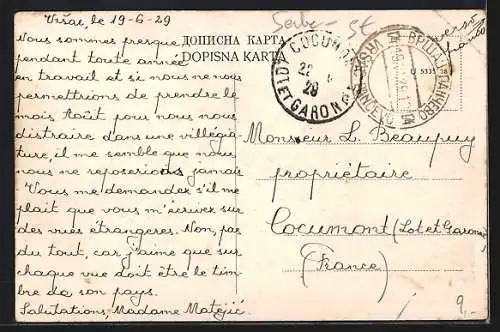 Vršac, le 19-6-29
Nous sommes presque
pendant toute année
en travail et si nous ne nous
permettrions de prendre le
mois Août pour nous en
distraire dans une villégia-
ture, il me semble que nous
ne nous reposerions jamais
Vous me demandez s'il me
plait que vous m'écrivez sur
des vues étrangeres. Non, pas
du tout, car j'aime que sur
chaque vue doit être le tim-
bre de son pays.
Salutations, Madame Matejić.
ДОПИСНА КАРТА
DOPISNA KARTA
COCUMONT
LOT ET GARONNE
22
29
Monsieur L. Beaupuy
propriétaire
Cocumont (Lot et Garonne)
(France)
9,-